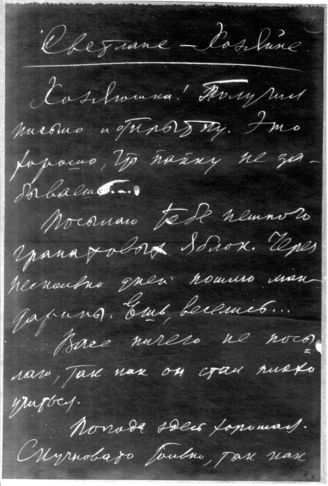 Светлане – Хозяйке.
Хозяюшка! Получил
письмо и открытку. Это
хорошо, что папку не за-
бываешь...
Посылаю тебе немного
гранатовых яблок. Через
несколько дней пошлю ман-
дарины. Ешь, веселись...
Васе ничего не посы-
лаю, так как он стал плохо
учиться.
Погода здесь хорошая.
Скучновато только, так как